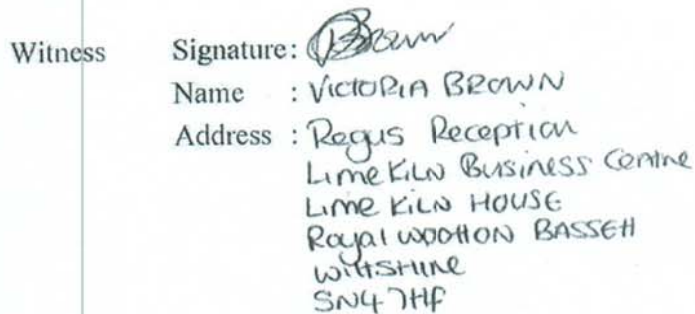 Witness Signature: Brown
Name : VICTORIA BROWN
Address : Regus Reception
Lime Kiln Business Centre
Lime Kiln House
Royal Wootton Bassett
Wiltshire
SN4 7HF